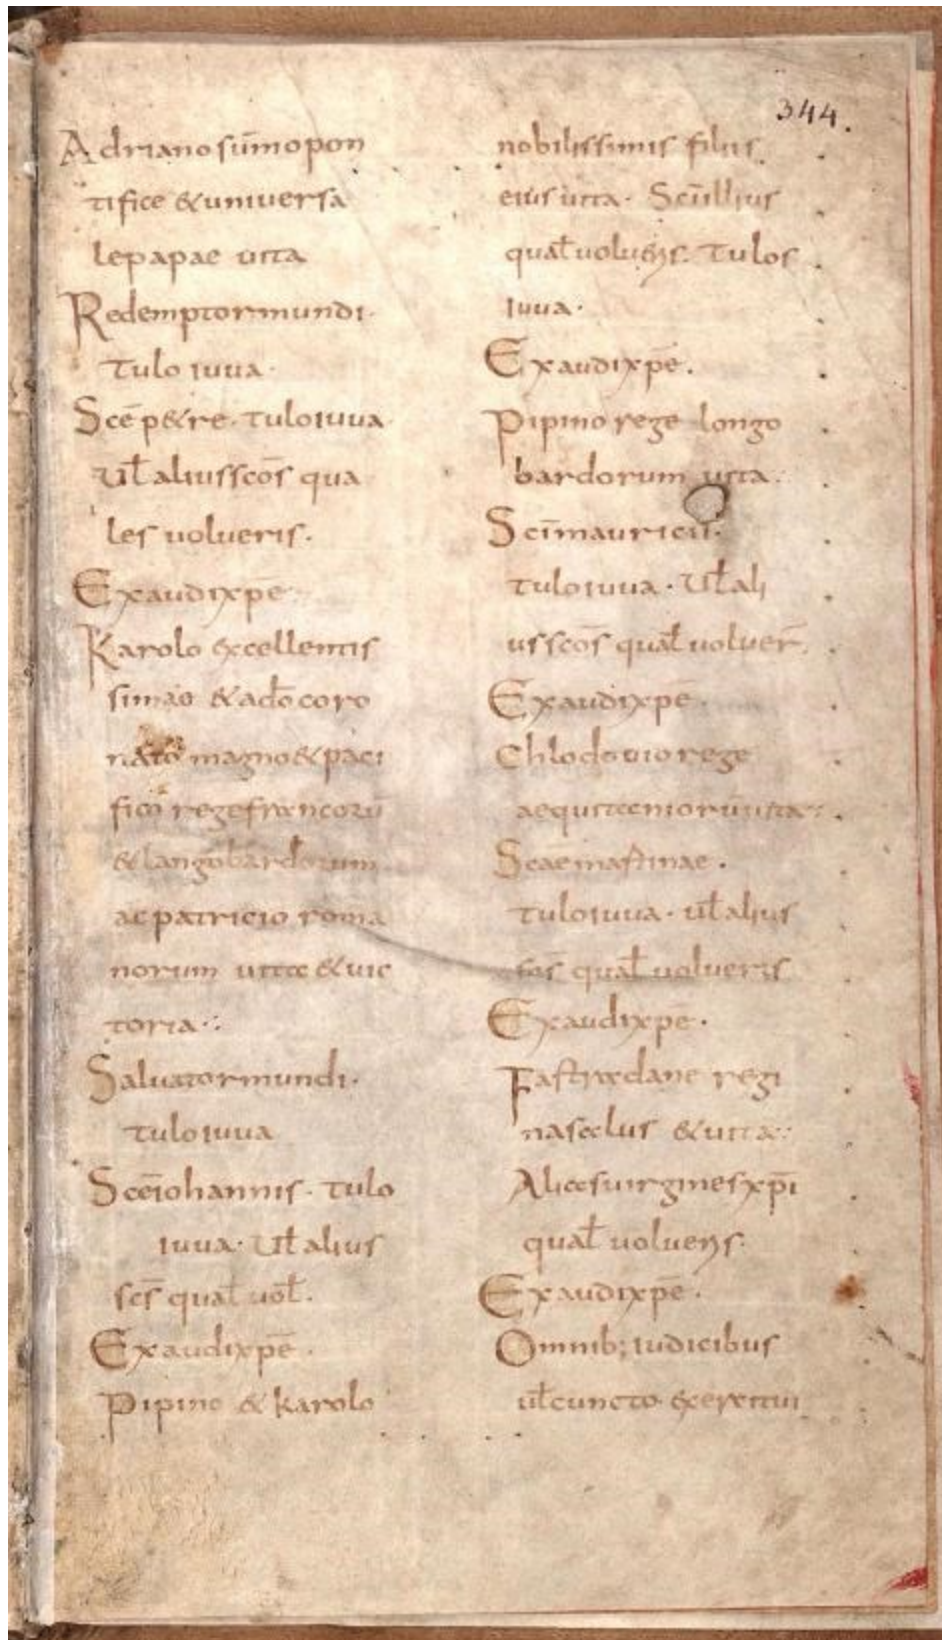 344.
Adriano sūmo pon
tifice & universa
le papae uita
Redemptor mundi.
Tu lo iuua.
Scē p&re. tu lo iuua.
Ul̄ alius scōs qua
les uolueris.
Exaudi xpē
Karolo excellentis
simo & a dō coro
nato magno & paci
fico rege francorū
& langobardorum
ac patricio roma
norum uita & uic
toria:
Saluator mundi.
tu lo iuua
Scē iohannis. tu lo
iuua. Ul̄ alius
scs̄ qual̄ uol̄.
Exaudi xpē.
Pipino & karolo
nobilissimis filiis
eius uita. Sc̄i illius
qual̄ uolueris. Tu los
iuua.
Exaudi xpē.
Pipino rege longo
bardorum uita:
Sc̄i mauricii.
tu lo iuua. Ul̄ ali
us scōs qual̄ uoluer̄.
Exaudi xpē.
Chlodouio rege
aequitaniorū uita:
Scae martinae.
tu lo iuua. ul̄ alius
scōs qual̄ uolueris
Exaudi xpē.
Fastradane regi
na salus & uita:
Alias uirgines xpī
qual̄ uolueris.
Exaudi xpē.
Omnib; iudicibus
ul̄ cuncto exercitui